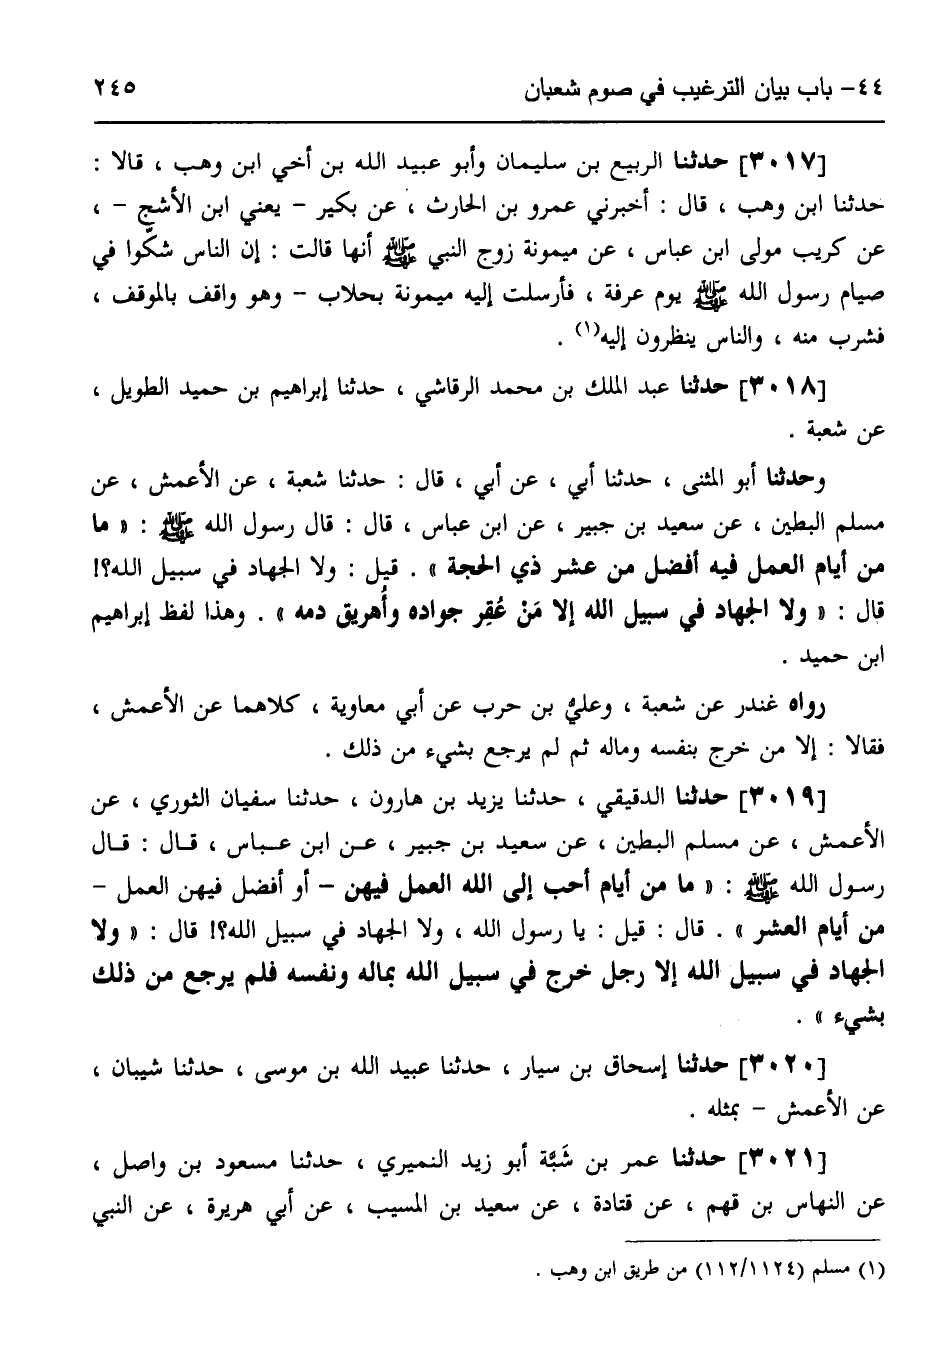 ٤٤- باب بيان الترغيب في صوم شعبان ٢٤٥
[٣٠١٧] حدثنا الربيع بن سليمان وأبو عبيد الله بن أخي ابن وهب ، قالا :
حدثنا ابن وهب ، قال : أخبرني عمرو بن الحارث ، عن بكير - يعني ابن الأشج - ،
عن كريب مولى ابن عباس ، عن ميمونة زوج النبي ﷺ أنها قالت : إن الناس شكّوا في
صيام رسول الله ﷺ يوم عرفة ، فأرسلت إليه ميمونة بحلاب - وهو واقف بالموقف ،
فشرب منه ، والناس ينظرون إليه(١) .
[٣٠١٨] حدثنا عبد الملك بن محمد الرقاشي ، حدثنا إبراهيم بن حميد الطويل ،
عن شعبة .
وحدثنا أبو المثنى ، حدثنا أبي ، عن أبي ، قال : حدثنا شعبة ، عن الأعمش ، عن
مسلم البطين ، عن سعيد بن جبير ، عن ابن عباس ، قال : قال رسول الله ﷺ : « ما
من أيام العمل فيه أفضل من عشر ذي الحجة » . قيل : ولا الجهاد في سبيل الله؟!
قال : « ولا الجهاد في سبيل الله إلا مَنْ عُقِر جواده وأُهريق دمه » . وهذا لفظ إبراهيم
ابن حميد .
رواه غندر عن شعبة ، وعليُّ بن حرب عن أبي معاوية ، كلاهما عن الأعمش ،
فقالا : إلا من خرج بنفسه وماله ثم لم يرجع بشيء من ذلك .
[٣٠١٩] حدثنا الدقيقي ، حدثنا يزيد بن هارون ، حدثنا سفيان الثوري ، عن
الأعمش ، عن مسلم البطين ، عن سعيد بن جبير ، عن ابن عباس ، قال : قال
رسول الله ﷺ : « ما من أيام أحب إلى الله العمل فيهن - أو أفضل فيهن العمل -
من أيام العشر » . قال : قيل : يا رسول الله ، ولا الجهاد في سبيل الله؟! قال : « ولا
الجهاد في سبيل الله إلا رجل خرج في سبيل الله بماله ونفسه فلم يرجع من ذلك
بشيء » .
[٣٠٢٠] حدثنا إسحاق بن سيار ، حدثنا عبيد الله بن موسى ، حدثنا شيبان ،
عن الأعمش - بمثله .
[٣٠٢١] حدثنا عمر بن شَبَّة أبو زيد النميري ، حدثنا مسعود بن واصل ،
عن النهاس بن قهم ، عن قتادة ، عن سعيد بن المسيب ، عن أبي هريرة ، عن النبي
(١) مسلم (١١٢/١١٢٤) من طريق ابن وهب .